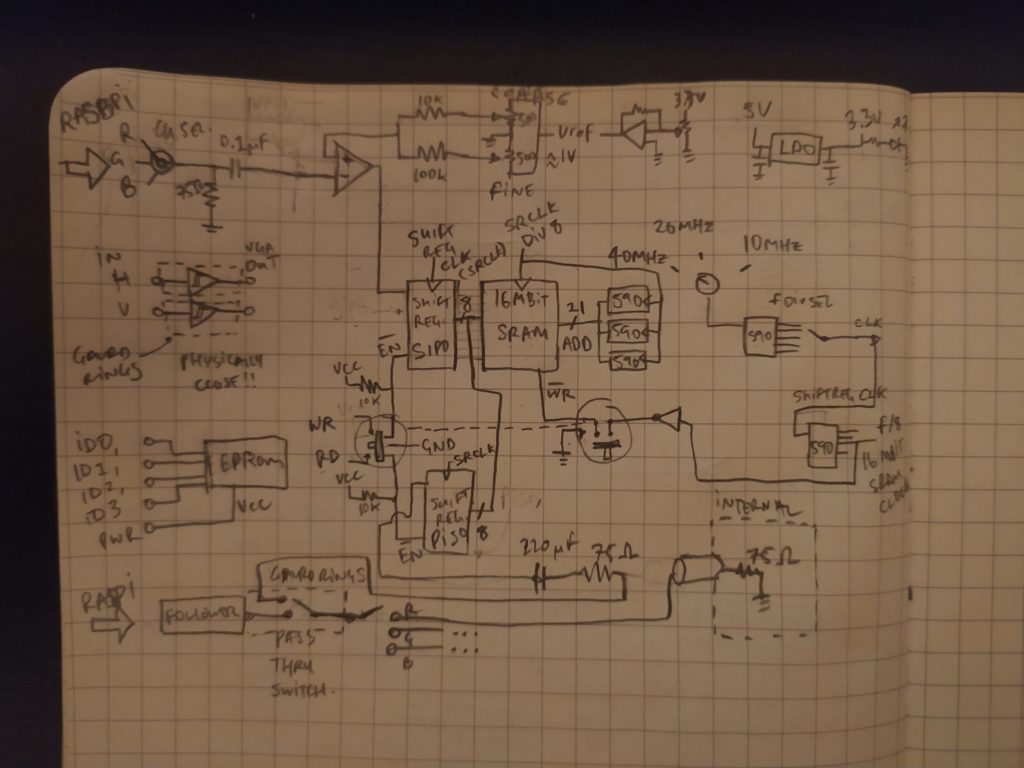 RASBPi
R
G
B
CH SEL
0.1µF
75Ω
10K
100K
COARSE
500
500
FINE
Vref
≈1V
3.3V
5V
LDO
3.3V
IN
H
V
VGA
Out
GAURD
RINGS
PHYSICALLY
CLOSE!!
SHIFT
REG
CLK
(SRCLK)
SHIFT
REG
SIPO
8
EN
SRCLK
DIV 8
16MBit
SRAM
21
ADD
WR
40MHZ
20MHZ
10MHZ
590
590
590
590
FDIVSEL
CLK
SHIFTREG CLK
590
f/8
16MBIT
SRAM
CLOCK
VCC
10K
WR
RD
GND
VCC
10K
SRCLK
SHIFT
REG
PISO
8
EN
ID0,
ID1,
ID2,
ID3
PWR
EPROM
VCC
220µF
75Ω
INTERNAL
75Ω
RASPi
FOLLOWER
GAURDRINGS
PASS
THRU
SWITCH
R
G
B